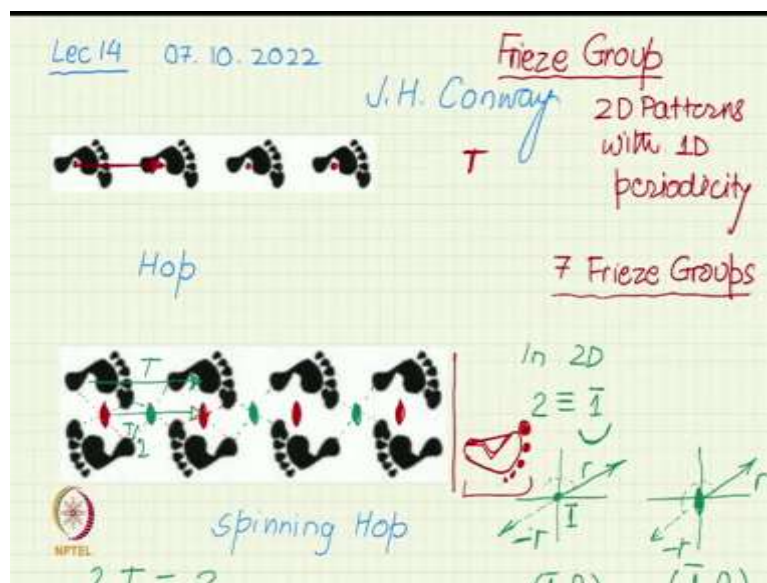 Lec 14 07.10.2022
Frieze Group
J.H. Conway
2D Patterns
with 1D
periodicity
T
Hop
7 Frieze Groups
T
T/2
In 2D
2 ≡ 1̄
r
-r
1̄
r
-r
Spinning Hop
NPTEL